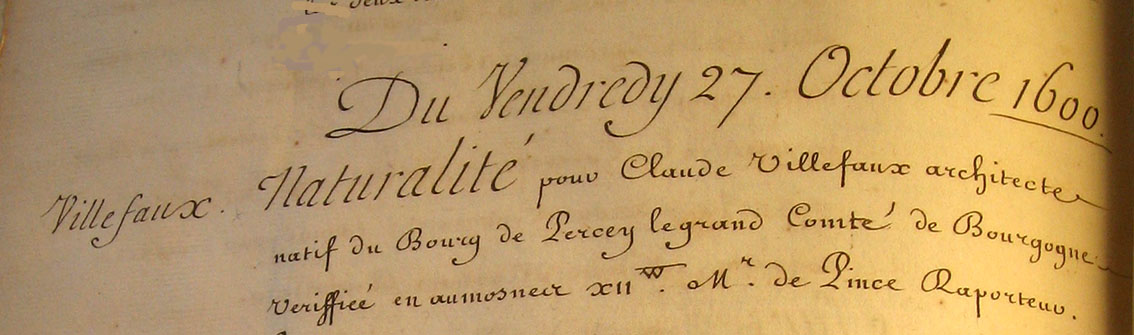 Du Vendredy 27. Octobre 1600.
Villefaux. Naturalité pour Claude Villefaux architecte
natif du Bourg de Percey legrand Comté de Bourgogne
veriffieé en aumosneir XII ᵂ. Mʳ. de Pince Raporteur.